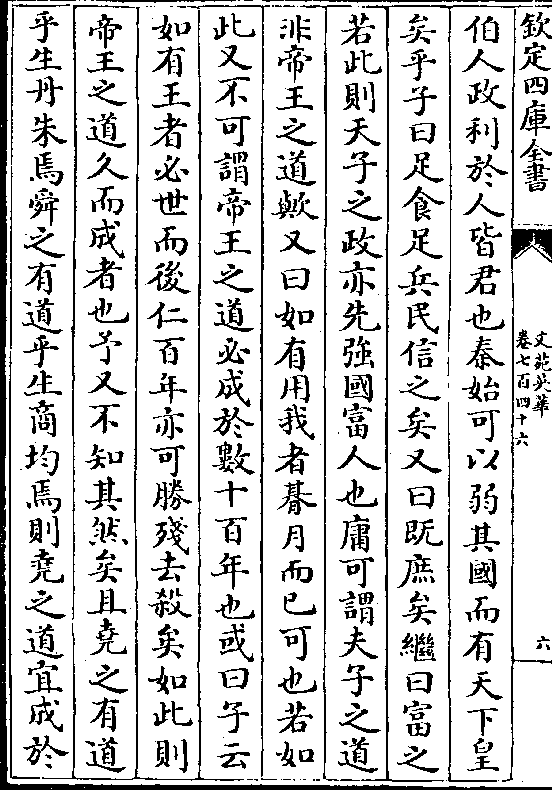 欽定四庫全書
文苑英華
卷七百四十六
六
伯人政利於人皆君也秦始可以弱其國而有天下皇
矣乎子曰足食足兵民信之矣又曰既庶矣繼曰富之
若此則天子之政亦先強國富人也庸可謂夫子之道
非帝王之道歟又曰如有用我者朞月而已可也若如
此又不可謂帝王之道必成於數十百年也或曰子云
如有王者必世而後仁百年亦可勝殘去殺矣如此則
帝王之道久而成者也予又不知其然矣且堯之有道
乎生丹朱焉舜之有道乎生商均焉則堯之道宜成於